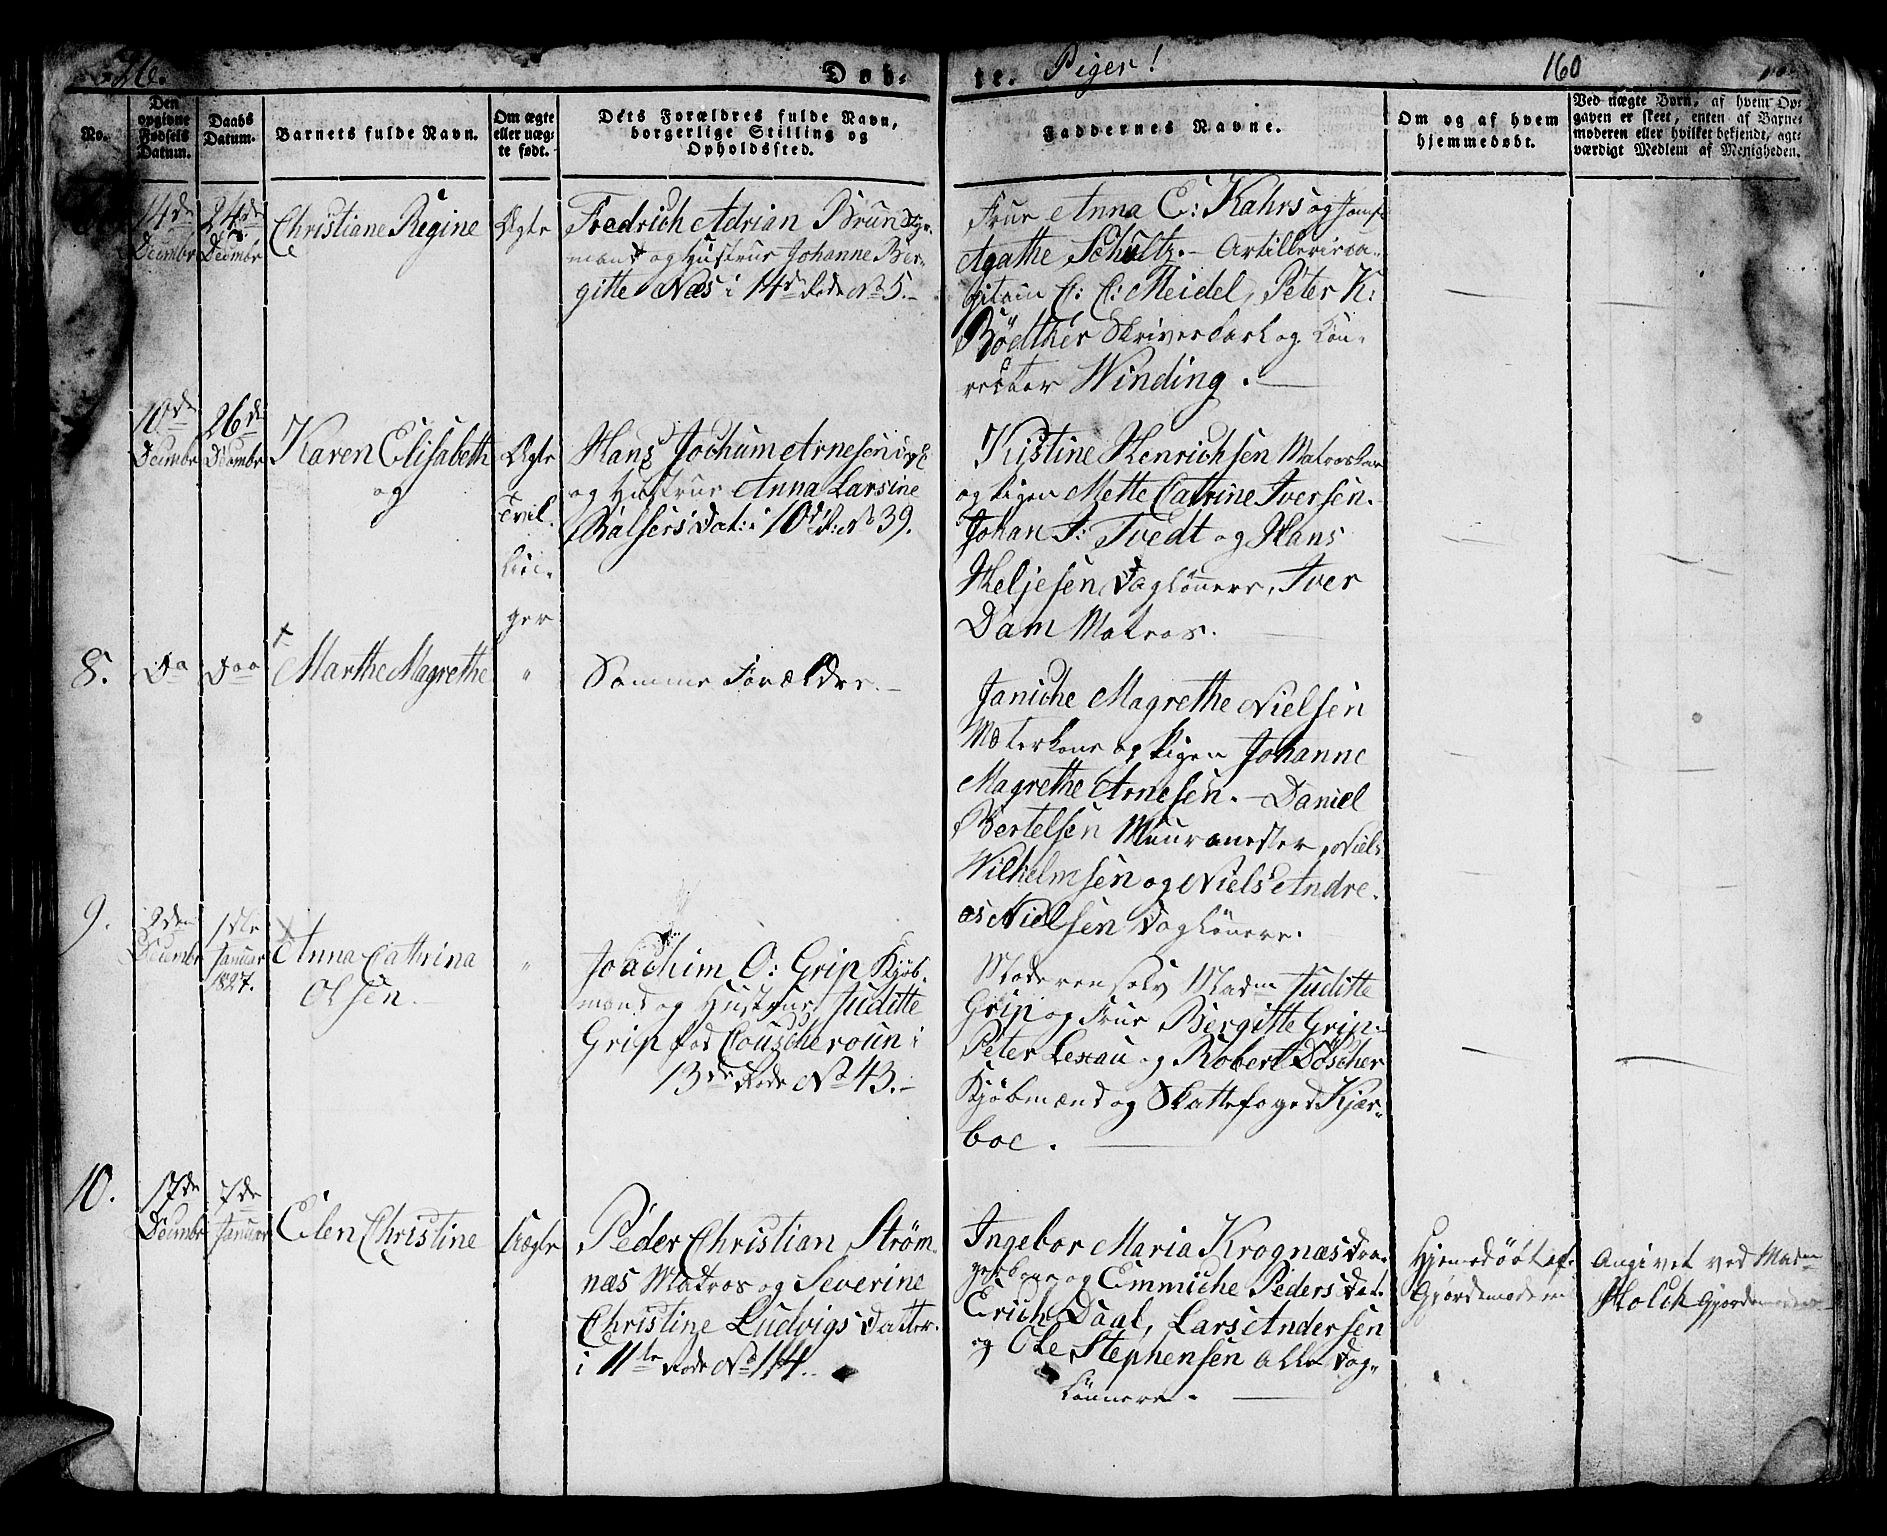 Døb-
te. Piger!
160
No.
Den
opgivne
Fødsels
Datum.
Daabs
Datum.
Barnets fulde Navn.
Om ægte
eller uæg-
te født.
Dets Forældres fulde Navn,
borgerlige Stilling og
Opholdssted.
Faddernes Navne.
Om og af hvem
hjemmedøbt.
Ved uægte Børn, af hvem Op-
gaven er skeet, enten af Barne-
moderen eller hvilket bekjendt, agt-
værdigt Medlem af Menigheden.
14de
Decembr
24de
Decembr
Christiane Regine
Ægte
Fredrich Adrian Brun
mand og Hustrue Johanne Ber-
gitte Næs i 14de Rode No 5.
Frue Anna C: Kahrs og Jomf:
Agathe Schultz. - Artillericca-
pitain C: C: Meidel, Peter K:
Bödtker Skriverkarl og Con-
rector Winding.
10de
Decembr
26de
Decembr
Karen Elisabeth
og
Ægte
Tvil-
lin-
ger
Hans Jochum Arnesen
og Hustrue Anna Larsine
Balsersdat: i 10de R. No 39.
Kistine Henrichsen Matroskone
og Pigen Mette Catrine Iversen.
Johan J: Tvedt og Hans
Heljesen Daglönnere, Iver
Dam Matros.
8.
Do
Do
† Marthe Magrethe
"
Samme Forældre.
Janiche Magrethe Nielsen
og Pigen Johanne
Magrethe Arnesen. - Daniel
Bertelsen Muurmester, Niels
Wilhelmsen og Niels Andre-
as Nielsen Daglönnere.
9.
2den
Decembr
1ste
Januar
1827.
Anna Cathrina
Olsen.
"
Joachim O: Grip Kjöb-
mand og Hustrue Juditte
Grip föd Couscheroun i
13de Rode No 43.
Moderen selv Madm Juditte
Grip og Frue Bergitte Grip.
Peter Lexau og Robert Döscher
Kjöbmænd og Skattefoged Kjær-
boe.
10.
17de
Decembr
7de
Januar
Elen Christine
Uægte
Peder Christian Ström-
næs Matros og Severine
Christine Ludvigsdatter
i 11te Rode No 114.
Ingebor Maria Krognæs
og Emmiche Pedersdat:
Erich Daal, Lars Andersen
og Ole Stephensen alle Dag-
lönnere.
Hjemedöbt af
Gjordemoderen
Angivet ved Madm
Holck Gjordemoder